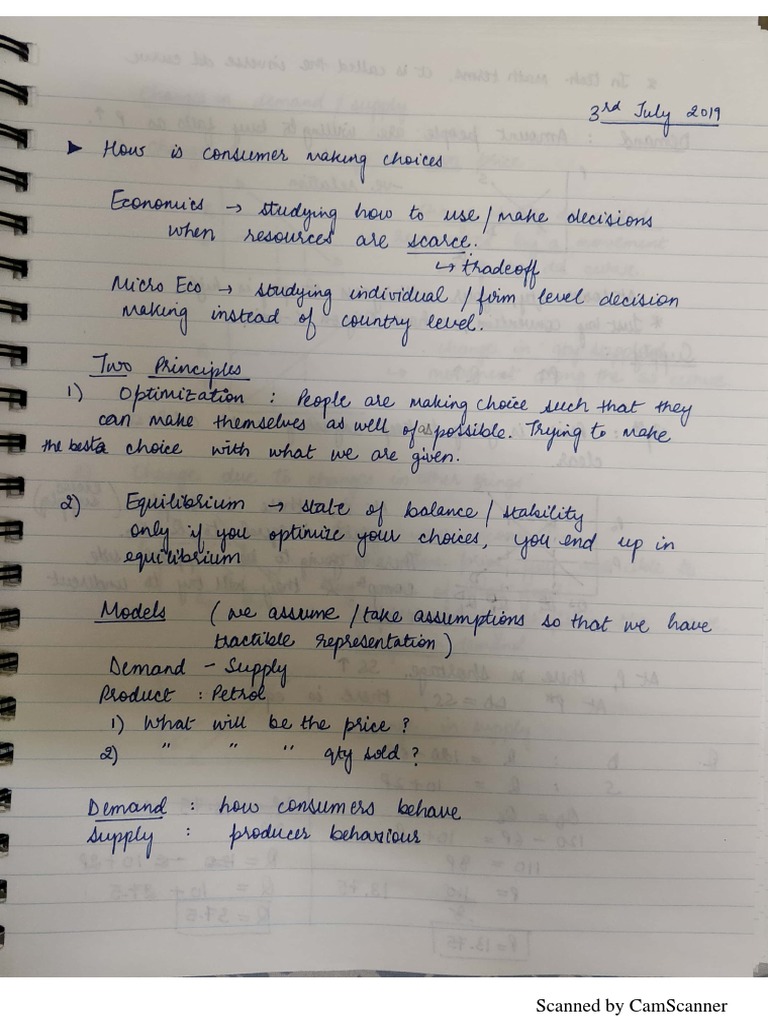 3rd July 2019
➤ How is consumer making choices
Economics → studying how to use / make decisions
when resources are scarce.
↳ tradeoff
Micro Eco → studying individual / firm level decision
making instead of country level.
Two Principles
1) Optimization : People are making choice such that they
can make themselves as well of as possible. Trying to make
the best choice with what we are given.
2) Equilibrium → state of balance / stability
only if you optimize your choices, you end up in
equilibrium
Models (we assume / take assumptions so that we have
tractible representation)
Demand - Supply
Product : Petrol
1) What will be the price ?
2) " " " qty sold ?
Demand : how consumers behave
Supply : producer behaviour
Scanned by CamScanner